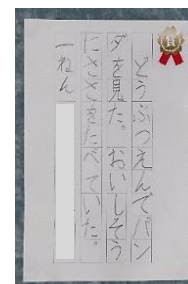 どうぶつえんでパン
ダを見た。おいしそう
にささをたべていた。
一ねん